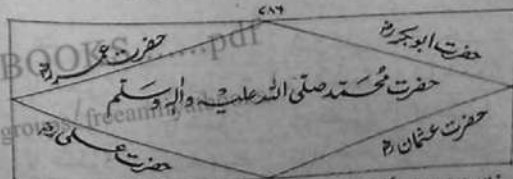 ۷۸۶
حضرت ابوبکرؓ
حضرت عمرؓ
حضرت مُحمّد صلّی اللہ علیہ واٰلہٖ وسلّم
حضرت عثمانؓ
حضرت علیؓ
BOOKS.......pdf
groups/freeamliyat